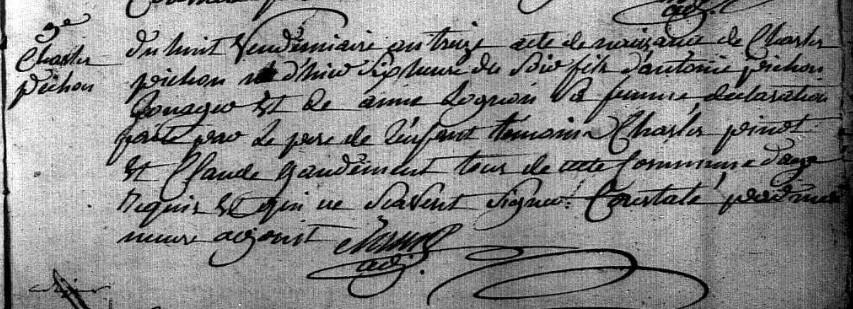 adj.
9e
Charles
pichon
Du huit Vendémiaire an treize acte de naissance de Charles
pichon né d'hier six heure du soir fils d'antoine pichon
et de anne sa femme, declaration
faite par le pere de l'enfant témoins Charles pinot
et Claude Gaudément tous de cette Commune d'age
requis et qui ne scavent signer. Constaté, par
maire adjoint
adj.